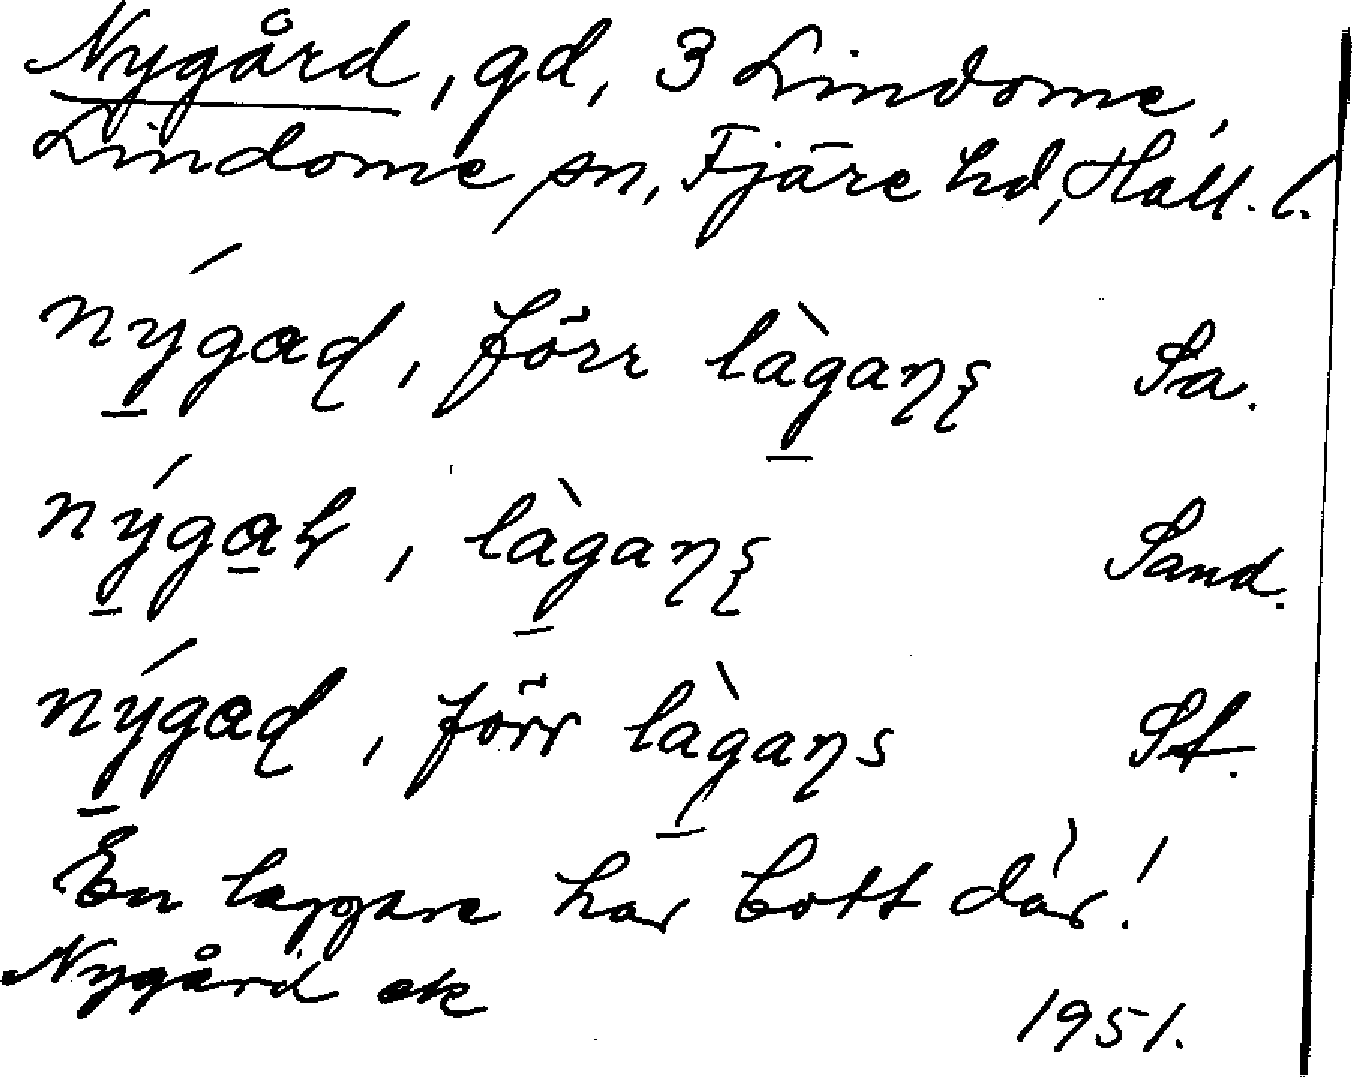 Nygård, gd, 3 Lindome,
Lindome sn, Fjäre hd, Hall. l.
nýgaɖ, förr làgaɳʂ Sa.
nýgaɽ, làgaɳʂ Sand.
nýgaɖ, förr làgaɳs St.
En laggare har bott där!
Nygård ek
1951.